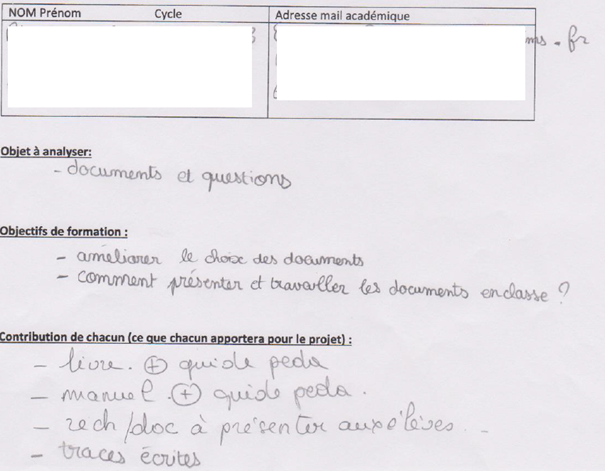 NOM Prénom Cycle Adresse mail académique
. fr
Objet à analyser:
- documents et questions
Objectifs de formation :
- améliorer le choix des documents
- comment présenter et travailler les documents en classe ?
Contribution de chacun (ce que chacun apportera pour le projet) :
- livre. + guide peda
- manuel. + guide peda.
- rech/doc à présenter aux élèves. -
- traces écrites